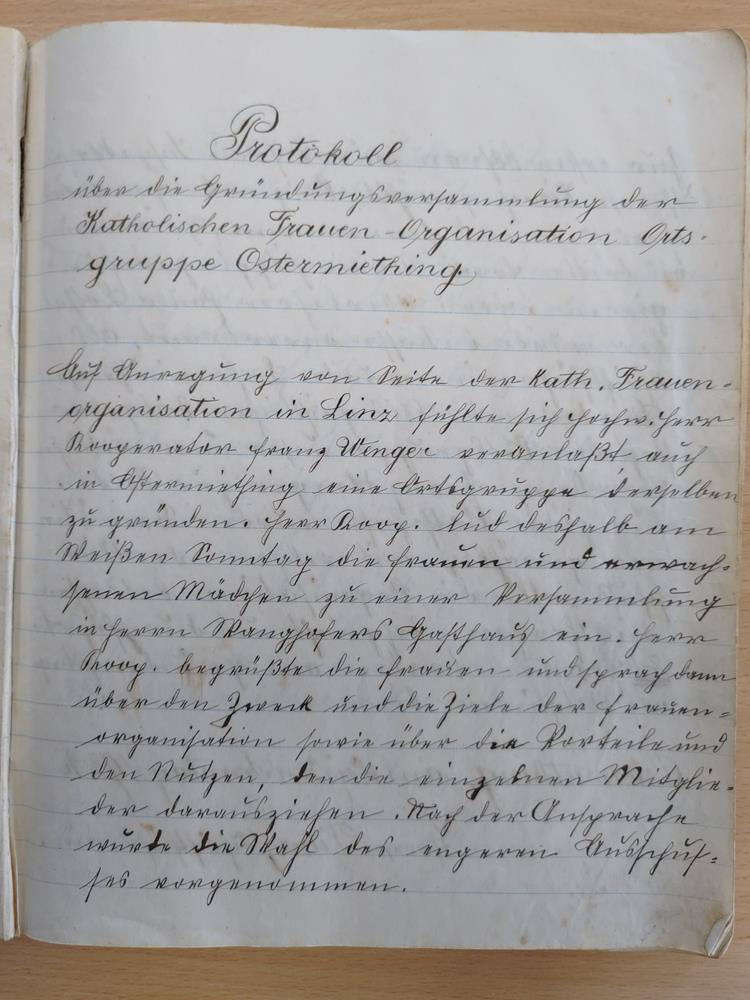 Protokoll
über die Gründungsversammlung der
Katholischen Frauen-Organisation Orts-
gruppe Ostermiething.
Auf Anregung von Seite der kath. Frauen-
organisation in Linz fühlte sich hochw. Herr
Kooperator Franz Wenger veranlaßt, auch
in Ostermiething eine Ortsgruppe derselben
zu gründen. Herr Koop. lud deshalb am
Weißen Sonntag die Frauen und erwach-
senen Mädchen zu einer Versammlung
in Herrn Wanghofers Gasthaus ein. Herr
Koop. begrüßte die Frauen und sprach dann
über den Zweck und die Ziele der Frauen-
organisation sowie über die Vorteile und
den Nutzen, den die einzelnen Mitglie-
der darausziehen. Nach der Ansprache
wurde die Wahl des engeren Ausschus-
ses vorgenommen.